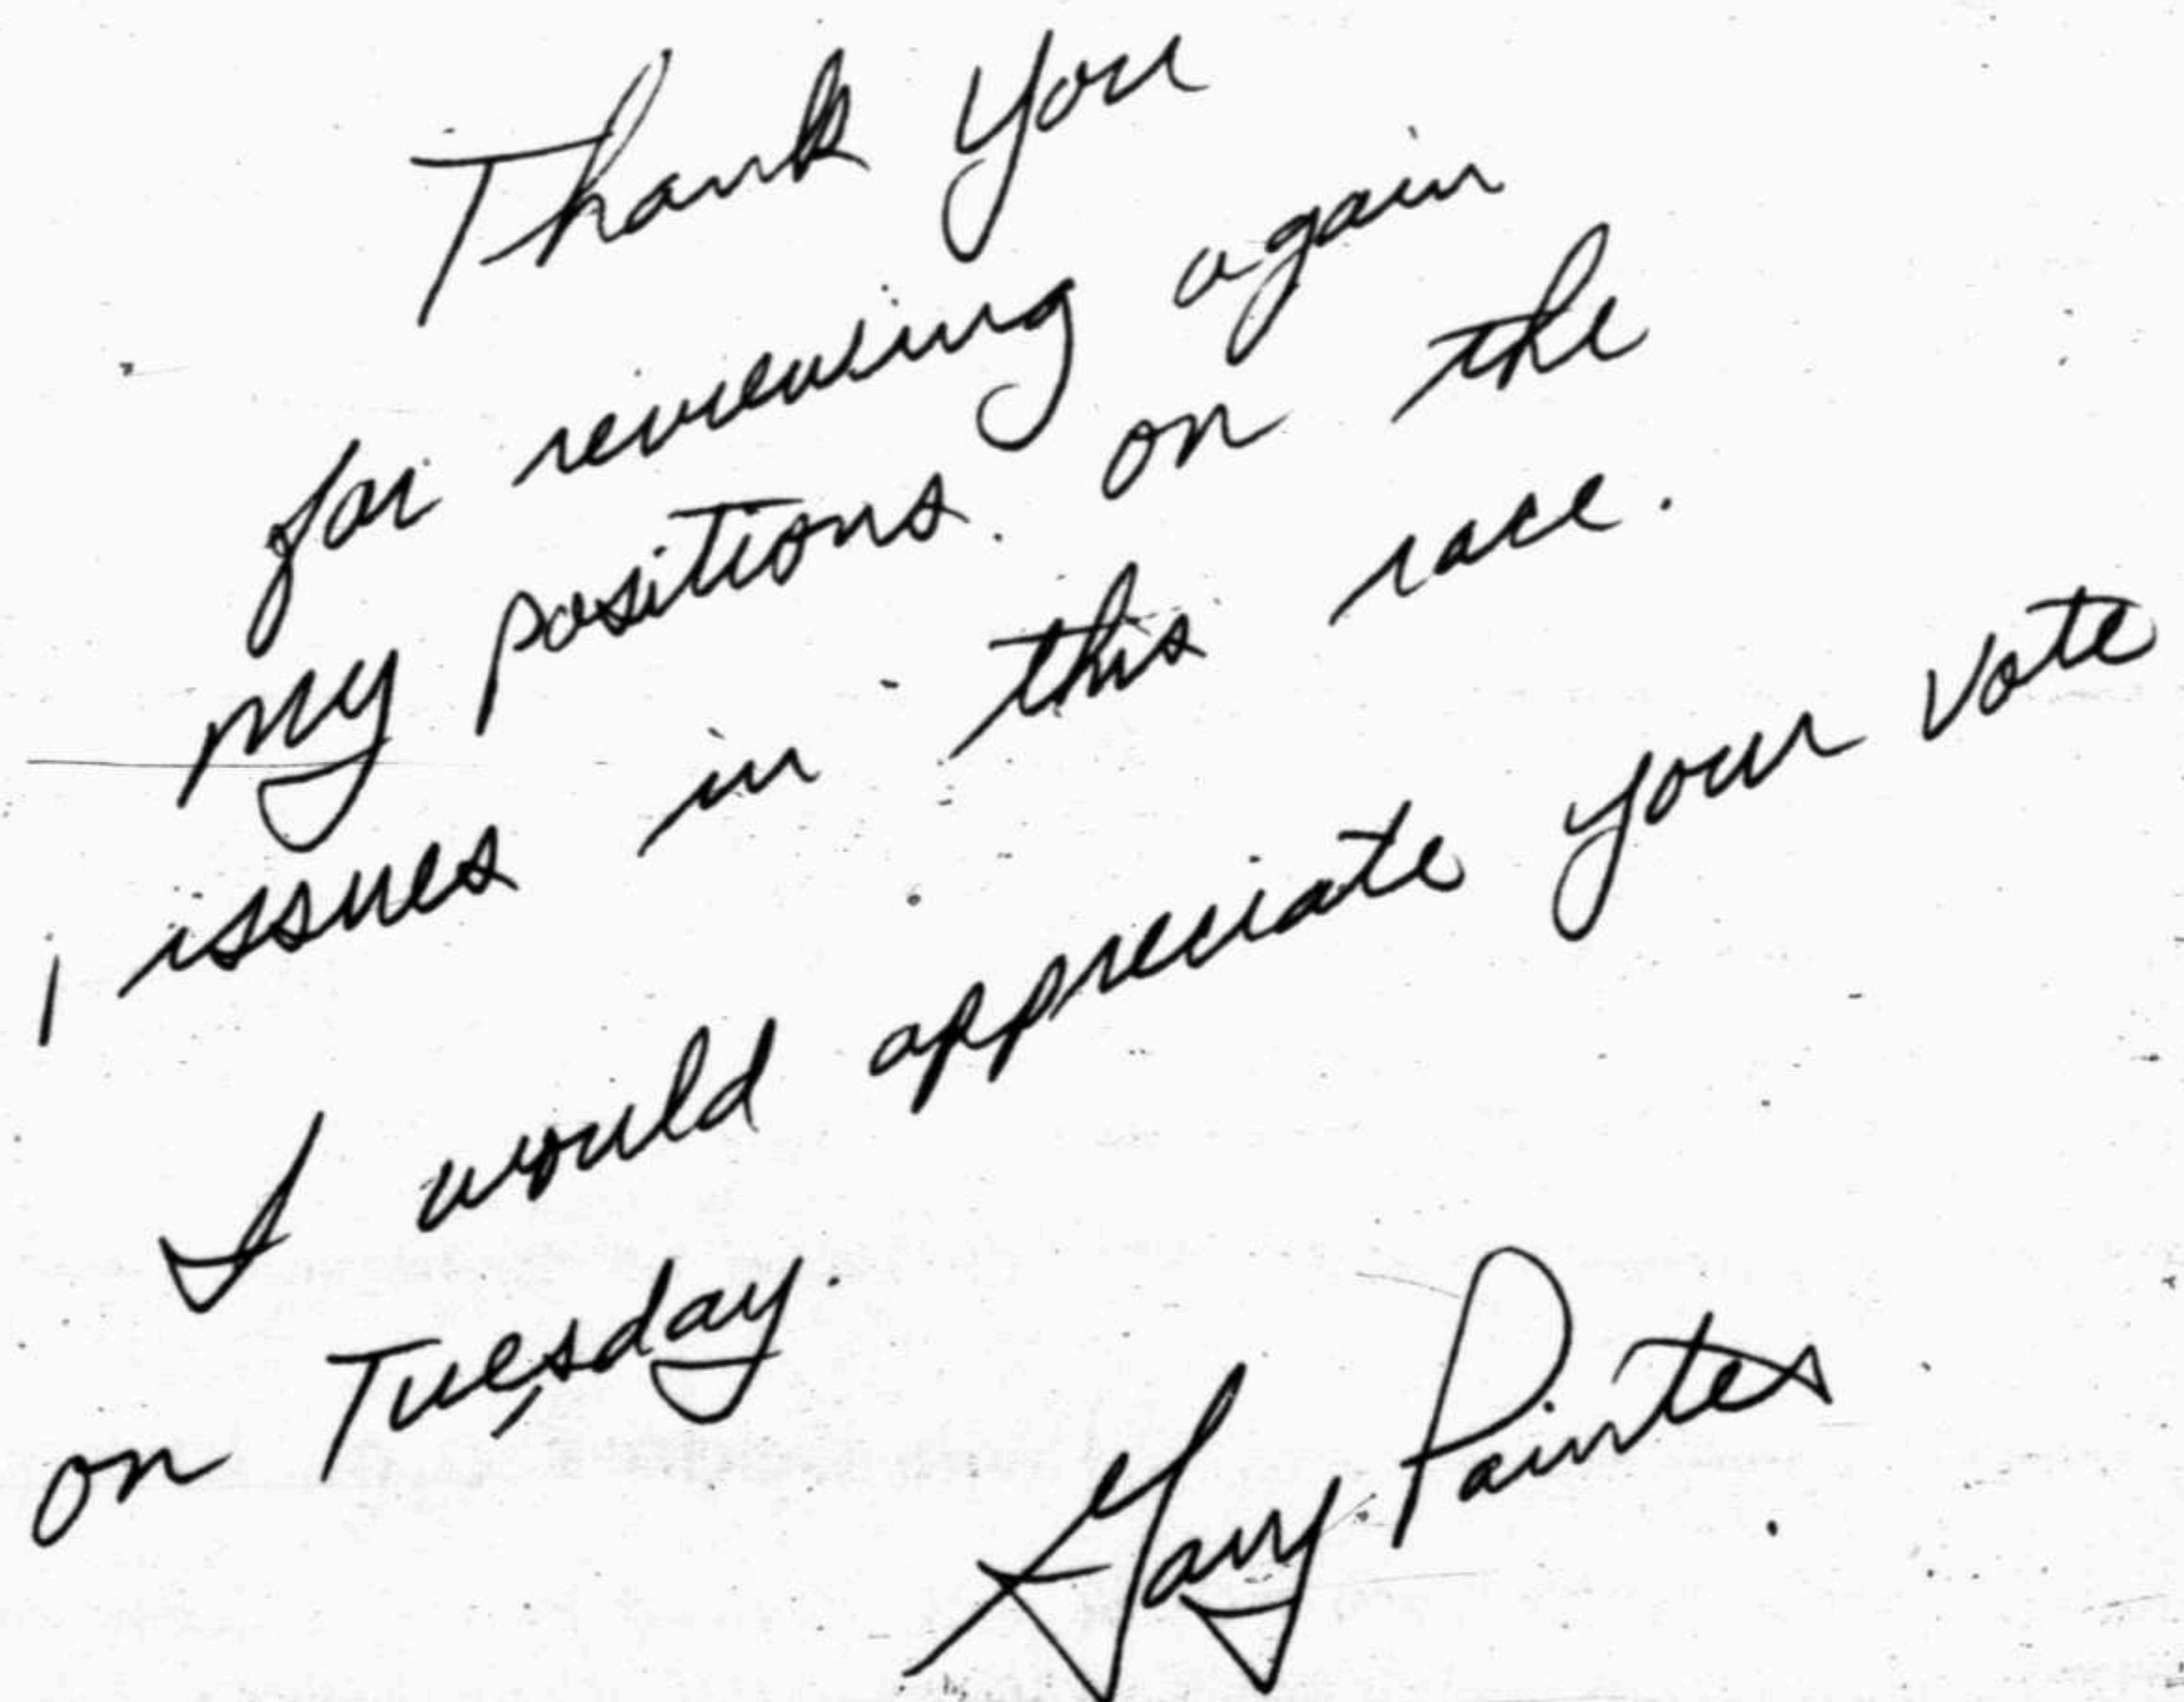 Thank you
for reviewing again
my positions on the
issues in this race.
I would appreciate your vote
on Tuesday.
Gary Painter